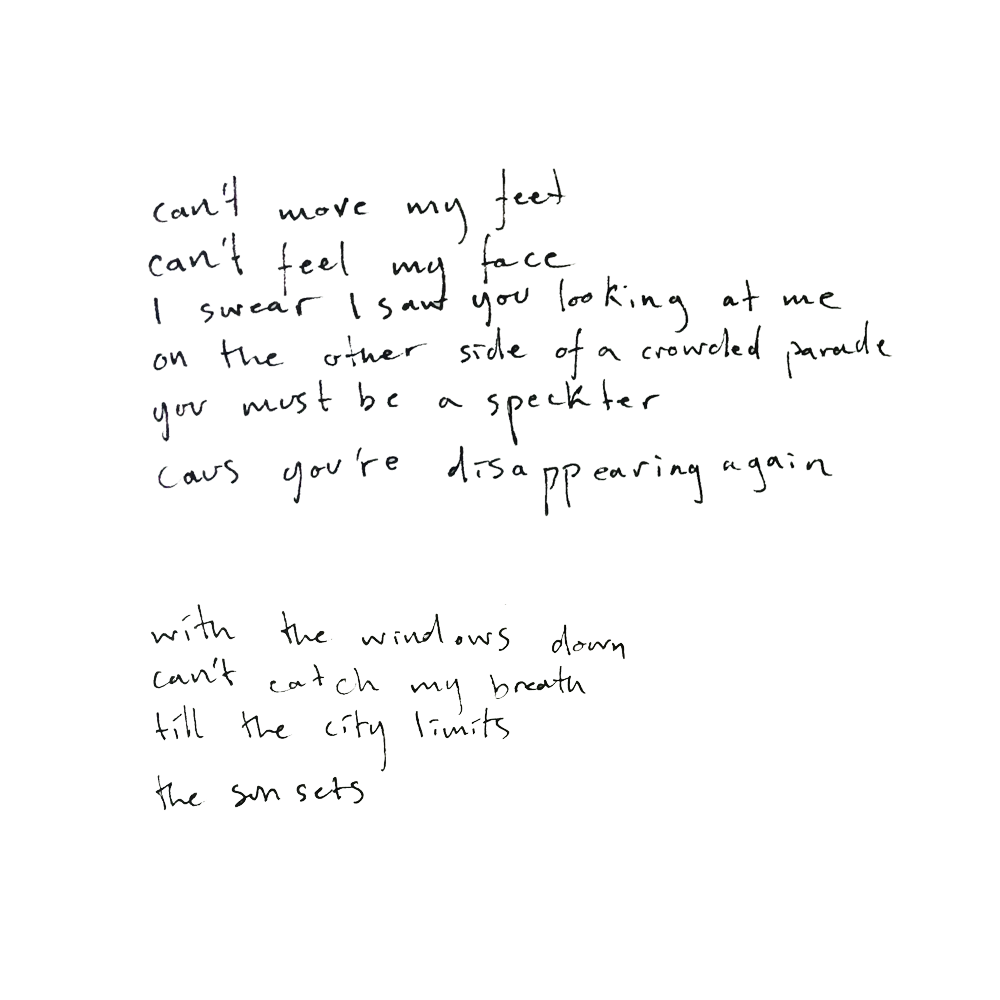 can't move my feet
can't feel my face
I swear I saw you looking at me
on the other side of a crowded parade
you must be a speckter
caus you're disappearing again
with the windows down
can't catch my breath
till the city limits
the sun sets